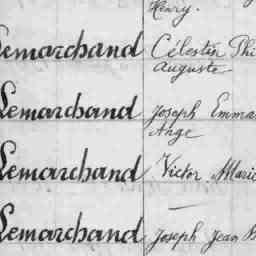 Henry.
Lemarchand Célestin Phi
Auguste
Lemarchand Joseph Emma
Ange
Lemarchand Victor Marie
Lemarchand Joseph Jean